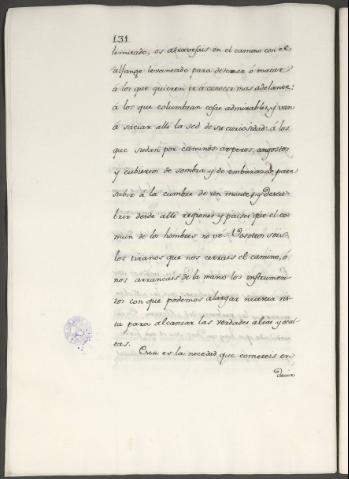 131
terminado, os atravesais en el camino con el
alfange levantado para detener ó matar
á los que quieren ir á conocer mas adelante:
á los que columbran cosas admirables, y van
á saciar alli la sed de su curiosidad: á los
que sudan por caminos asperos, angostos
y cubiertos de sombra y de embarazos, para
subir á la cumbre de un monte, y descu-
brir desde alli regiones y paises que el co-
mun de los hombres no ve. Vosotros sois
los tiranos que nos cerrais el camino, ó
nos arrancais de la mano los instrumen-
tos con que podemos alargar nuestra vis-
ta para alcanzar las verdades altas y ocul-
tas.
Esta es la necedad que cometeis en
decir